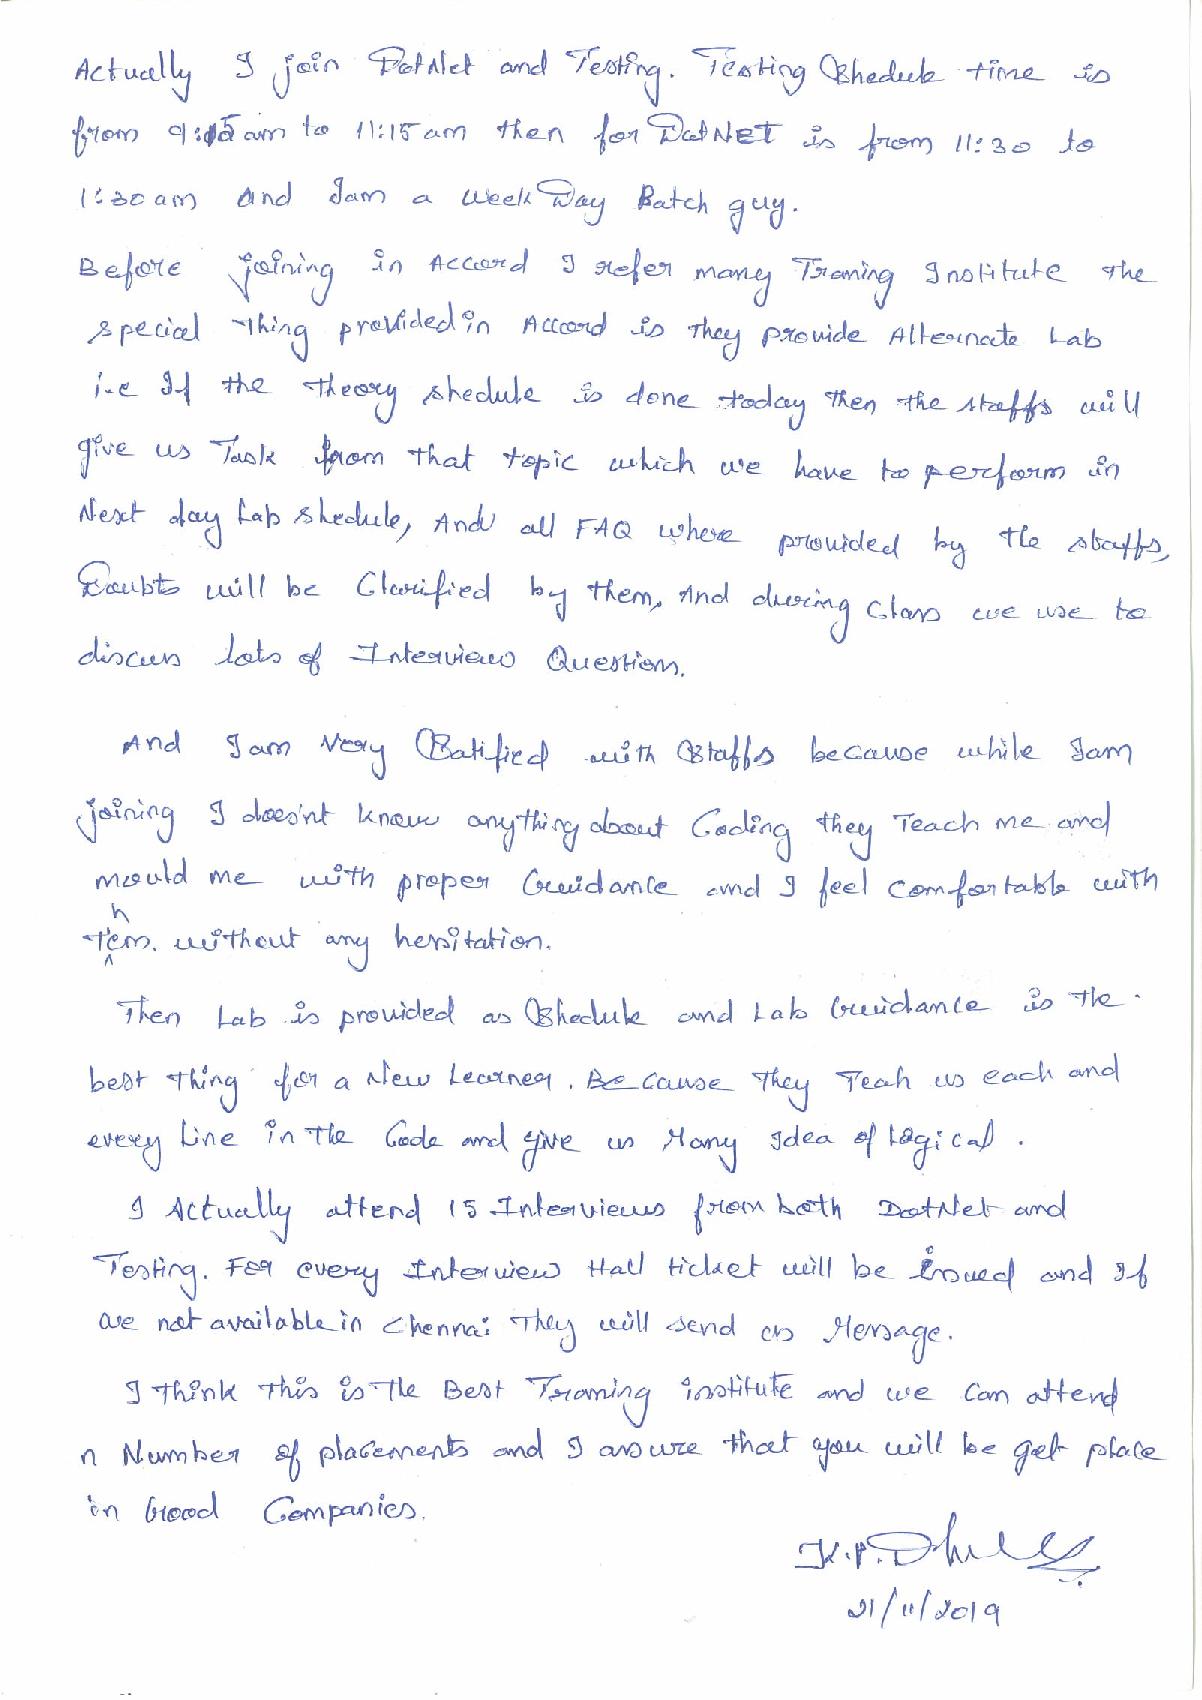 Actually I join DotNet and Testing. Testing Shedule time is
from 9:15am to 11:15am then for DotNET is from 11:30 to
1:30am and Iam a Week Day Batch guy.
Before joining in Accord I refer many Traning Institute the
special thing provided in Accord is they provide Alternate Lab
i.e If the theory shedule is done today then the staffs will
give us Task from that topic which we have to perform in
Next day Lab shedule, And all FAQ where provided by the staffs,
Doubts will be Clarified by them, And during Class we use to
discuss lots of Interview Questions.
And Iam Very Satified with Staffs because while Iam
joining I does'nt know anything about Coding they Teach me and
mould me with proper Guidance and I feel comfortable with
them. without any hessitation.
Then Lab is provided as Shedule and Lab Guidance is the
best thing for a New Learner. Because they Teah us each and
every Line in the Code and give us Many Idea of Logical.
I Actually attend 15 Interviews from both DotNet and
Testing. For every Interview Hall ticket will be issued and If
are not available in Chennai they will send as Message.
I think this is the Best Traning institute and we can attend
n Number of placements and I assure that you will be get place
in Good Companies.
21/11/2019